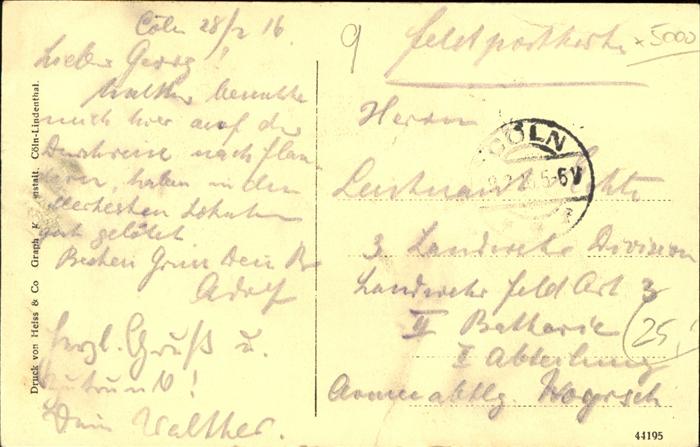 Cöln 28/2 16
Lieber Georg!
Walther besuchte
mich hier auf der
Durchreise nach Flan
dern, haben in den
Lokalen
gut gelötet.
Besten Gruss Dein Br
Adolf
Herzl. Gruß u.
Dein Walther.
Druck von Heiss & Co Graph. Cöln-Lindenthal.
9
Feldpostkarte
x 5000
Herrn
CÖLN
5-6V
Leutnant
3 Landwehr Division
Landwehr Feld Art 3
II Batterie
I Abteilung
25,
Armee abtlg. Woyrsch
44195